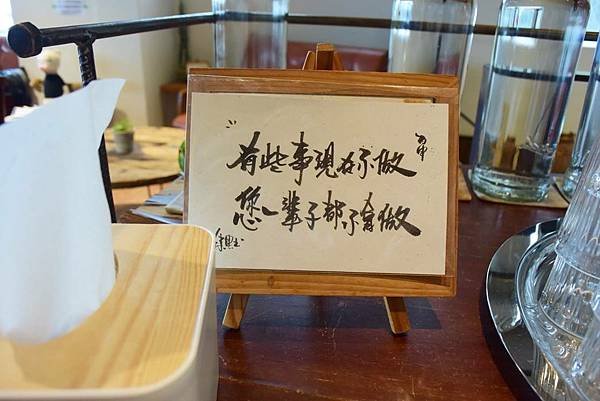 有些事現在不做
您一輩子都不會做